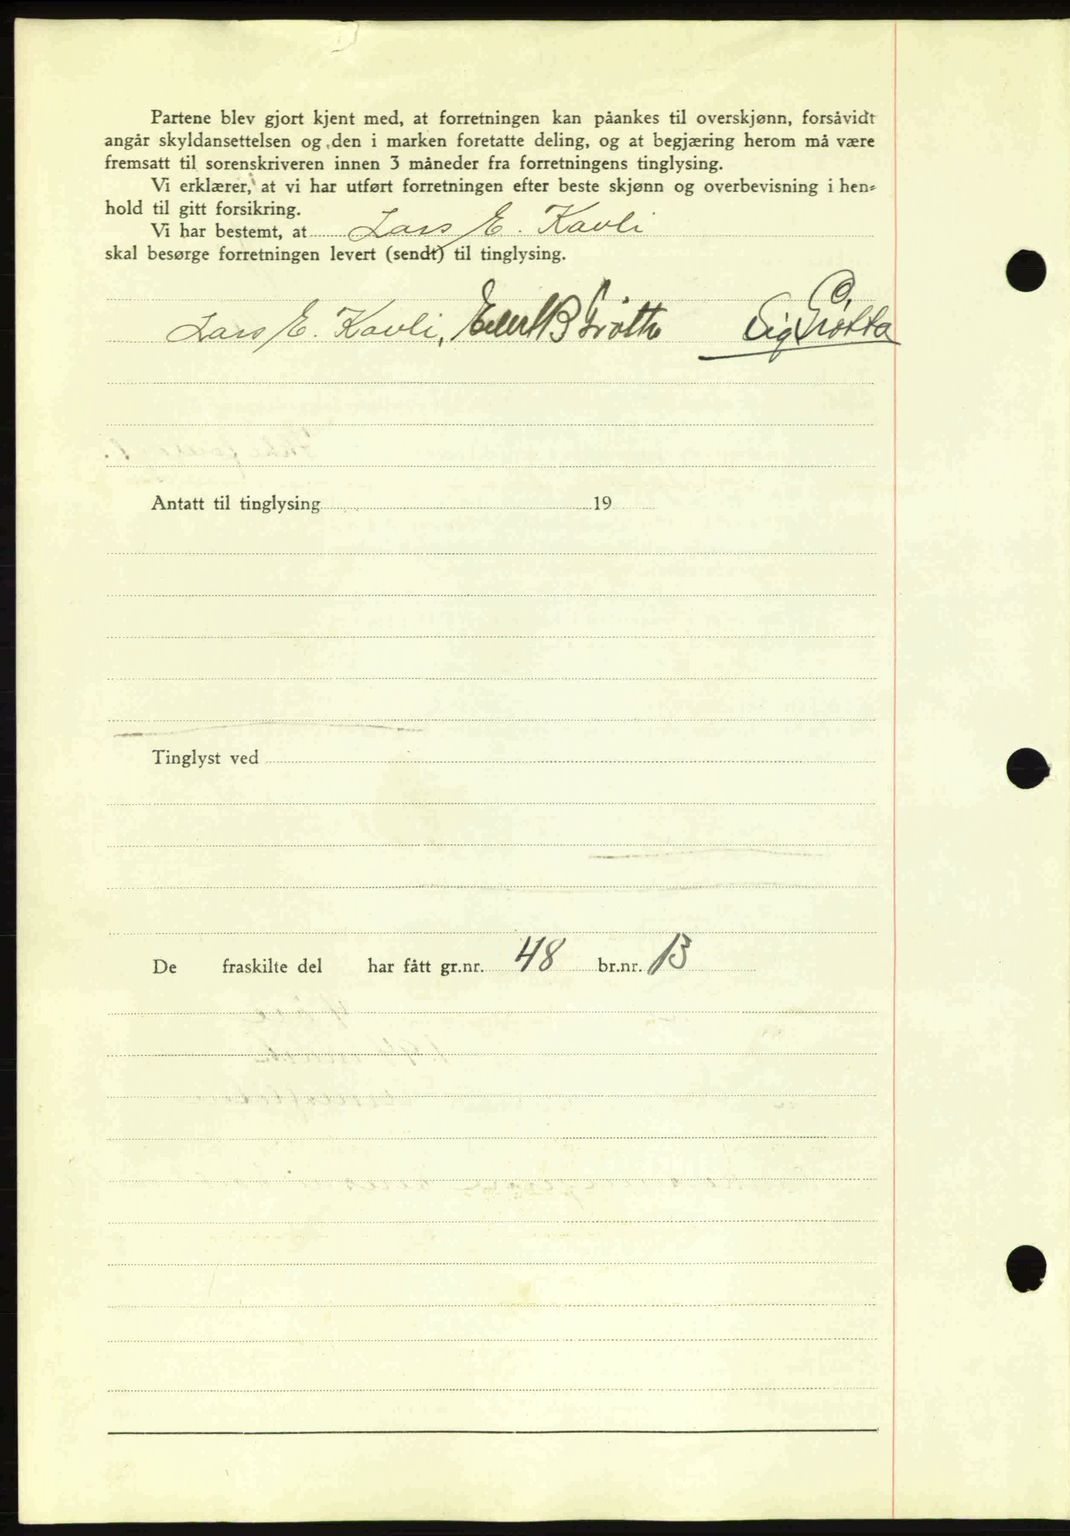 Partene blev gjort kjent med, at forretningen kan påankes til overskjønn, forsåvidt
angår skyldansettelsen og den i marken foretatte deling, og at begjæring herom må være
fremsatt til sorenskriveren innen 3 måneder fra forretningens tinglysing.
Vi erklærer, at vi har utført forretningen efter beste skjønn og overbevisning i hen-
hold til gitt forsikring.
Vi har bestemt, at Lars E. Kavli
skal besørge forretningen levert (sendt) til tinglysing.
Lars E. Kavli, B Grötta Sig. Grötta
Antatt til tinglysing 19
Tinglyst ved
De fraskilte del har fått gr.nr. 48 br.nr. 13